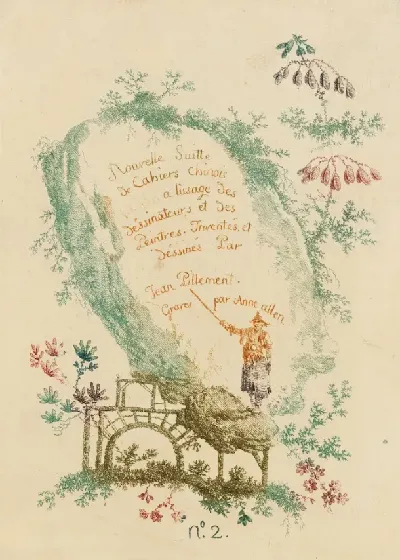 Nouvelle Suitte
de Cahiers Chinois
a l'usage des
dessinateurs et des
Peintres. Inventés, et
dessinés Par
Jean Pillement.
Gravés par Anne Allen
Nº. 2.